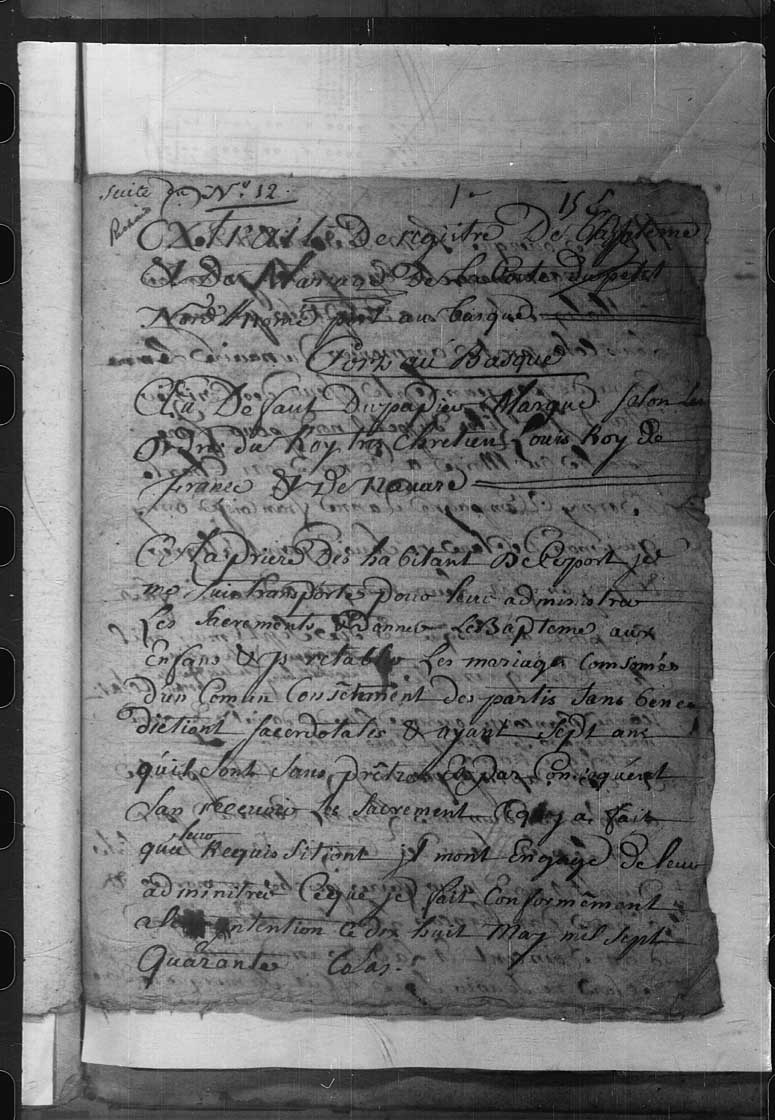 Suite du No. 12.
Extrait De registre De Bapteme
Et De Mariage De la Coste du petit
Nord Nomé port aux basques
Port au Basque
A Defaut Du papier Marqué selon les
Ordres du Roy tres Chretien Louis Roy de
France Et De Navare
Et La priere Des habitant De Ce port je
me suis transportes pour leur administrer
Les Sacrements & Donner Le Bapteme aux
Enfans & rétablir Les mariage Comsomés
d'un Comun Consêtement des partis Sans Bene
dictiont sacerdotales & ayant Sept ans
qu'il sont sans prêtres Et par Consequent
San recevoir Les Sacrement Ce qui a fait
qu'a leur Requisitiont jl mont Engagé de leur
administrer Ce que je fait Conformément
a leur intention Ce dix huit May mil sept
Quarante Colas.